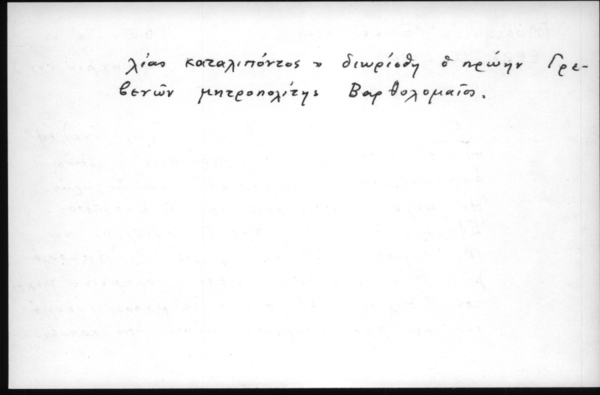 λέας καταλιπόντος διωρίσθη ὁ πρώην Γρε-
βενῶν μητροπολίτης Βαρθολομαῖος.